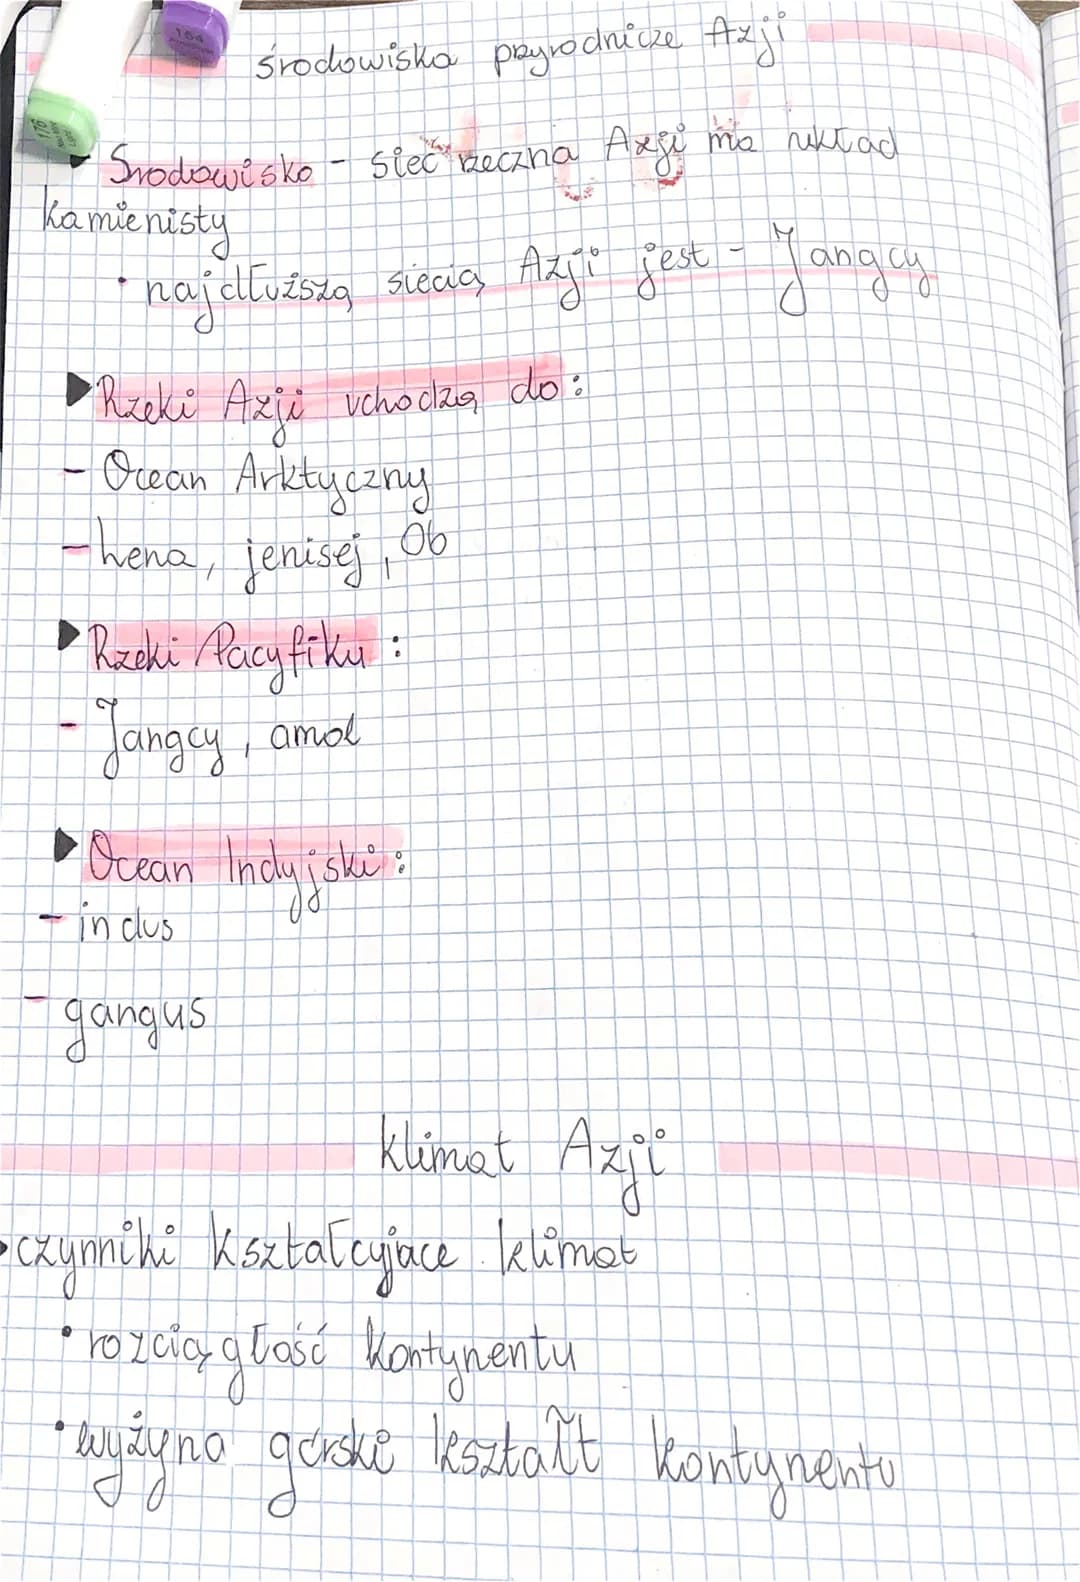 164
176
środowiska przyrodnicze Azji
Środowisko - sieć rzeczna Azji ma układ
kamienisty
• najdłuższą siecią Azji jest - Jangcy
Rzeki Azji vchodzią do:
- Ocean Arktyczny
- hena, jenisej, Ob
Rzeki Pacyfiku:
- Jangcy, amol
Ocean Indyjski:
- indus
- gangus
klimat Azji
czynniki kształcyjace klimat
• rozciągłość kontynentu
• wyżyna górskie kształt kontynentu